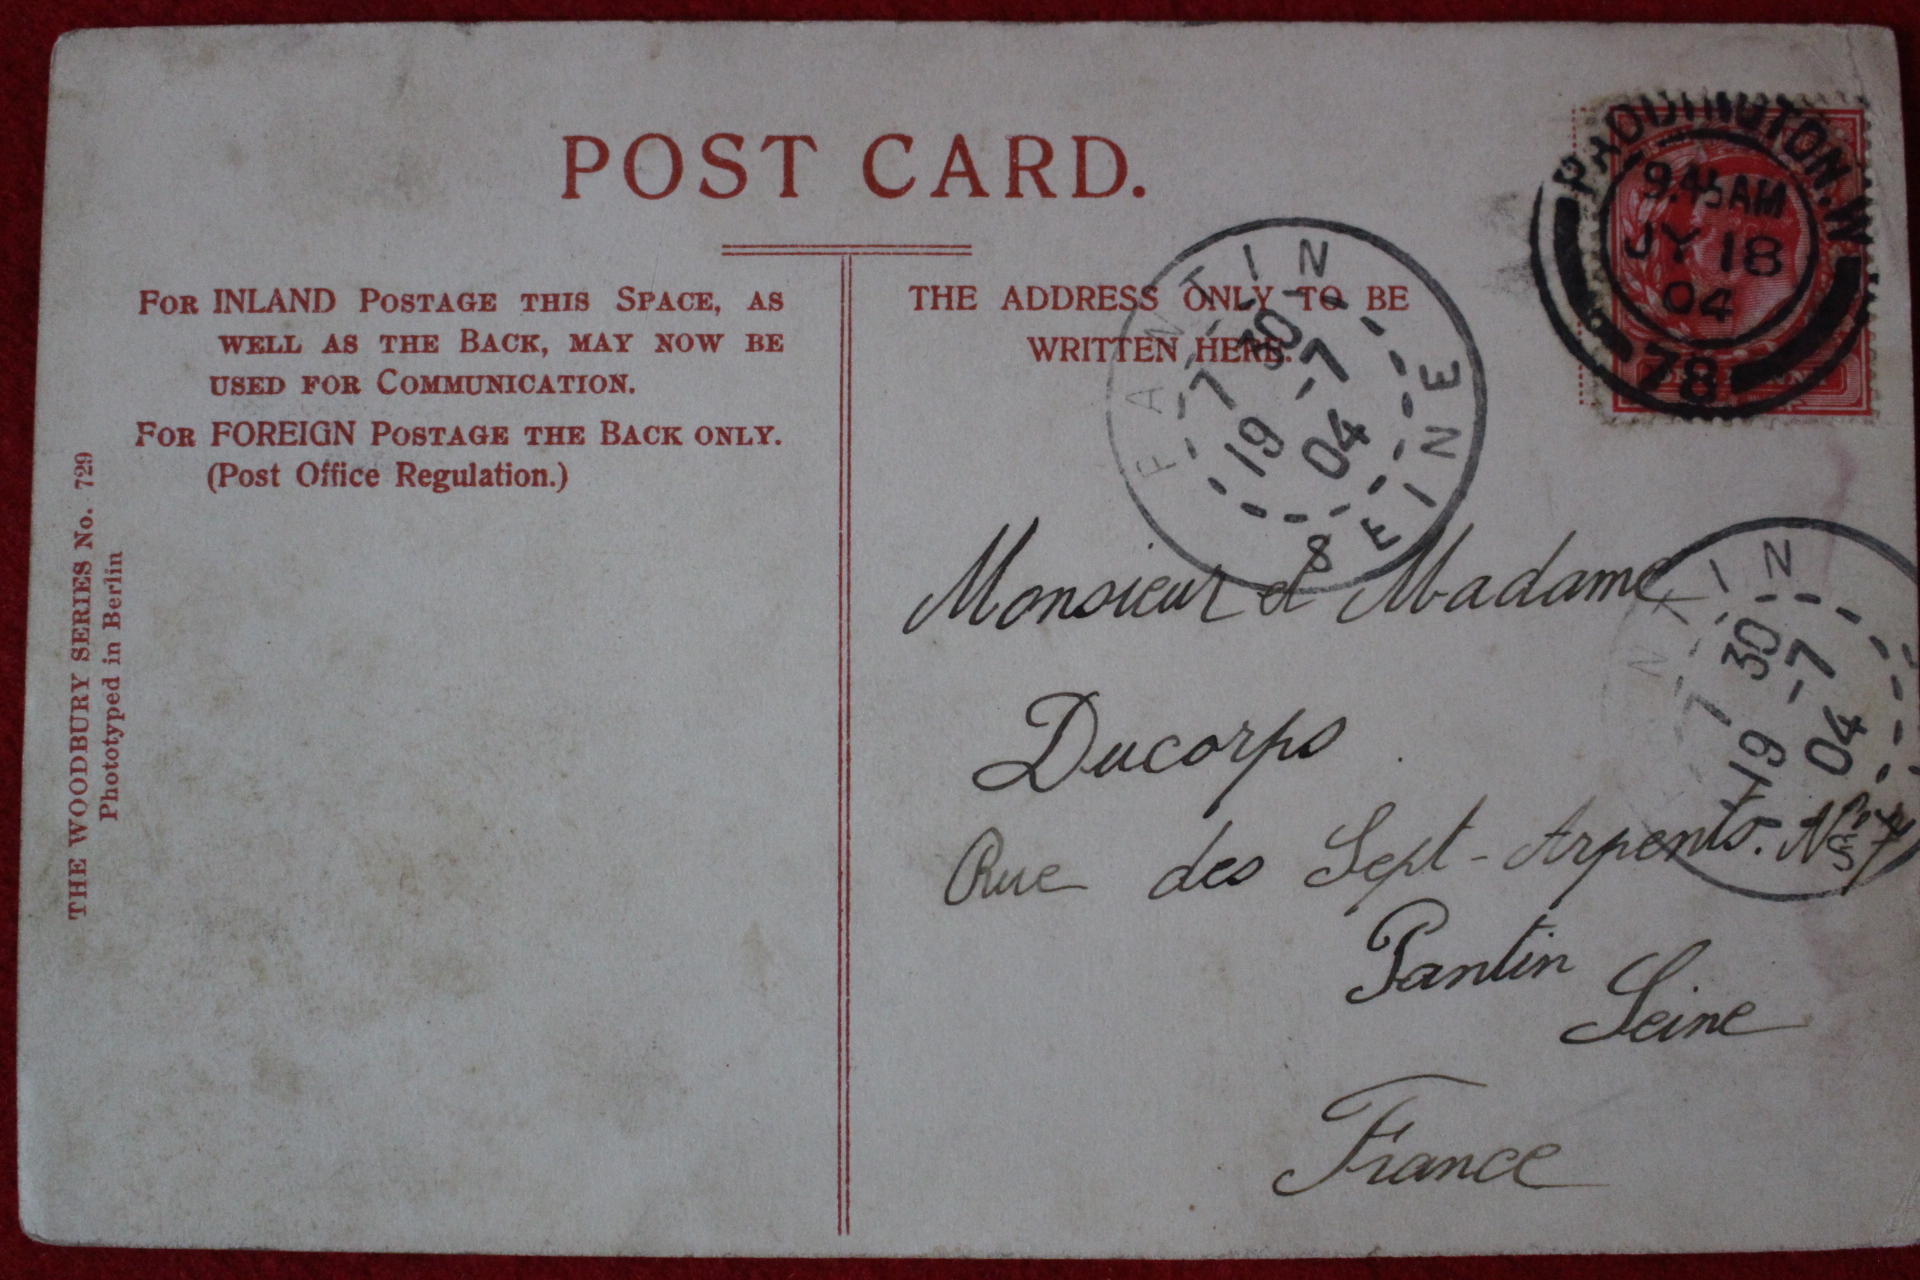 POST CARD.
FOR INLAND POSTAGE THIS SPACE, AS
WELL AS THE BACK, MAY NOW BE
USED FOR COMMUNICATION.
FOR FOREIGN POSTAGE THE BACK ONLY.
(Post Office Regulation.)
THE WOODBURY SERIES No. 729
Phototyped in Berlin
THE ADDRESS ONLY TO BE
WRITTEN HERE.
PADDINGTON. W
9.45 AM
JY 18
04
78
PANTIN
7 30
19 -7
04
SEINE
8
Monsieur et Madame
Ducorps
Rue des Sept-Arpents. No
Pantin
Seine
France
NTIN
7 30
19 -7
04